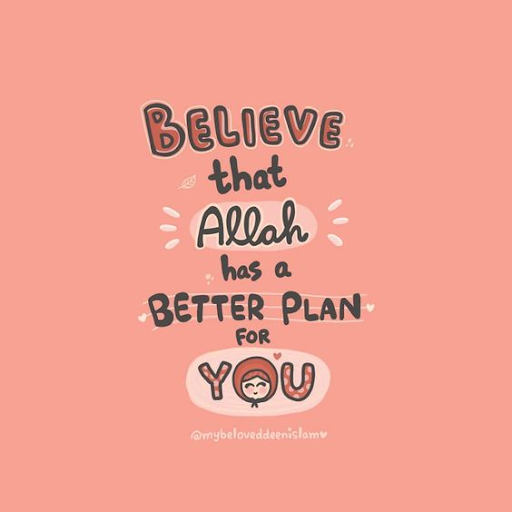 BELIEVE
that
Allah
has a
BETTER PLAN
FOR
YOU
@mybeloveddeenislam♥